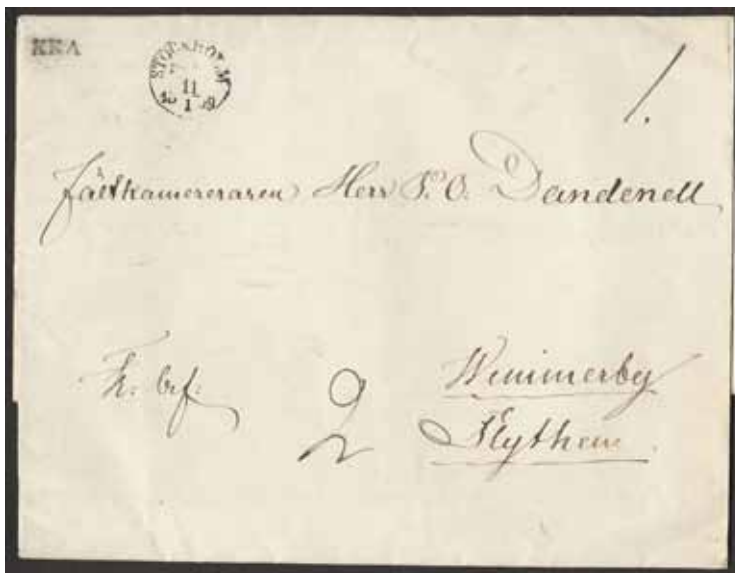 KKA
STOCKHOLM
11
1
1.
Fältkamereraren Herr P. O. Dandenell
Fr. brf.
2
Wimmerby